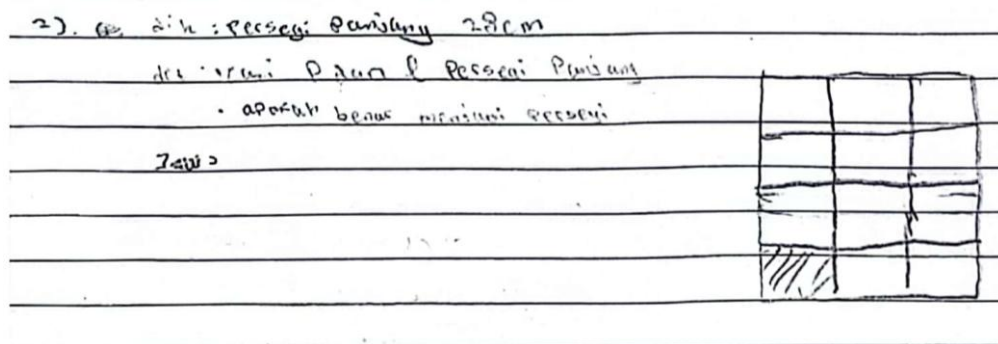 2). dik : persegi panjang 28cm
P dan l Persegi Panjang
• apakah benar menjadi persegi
Jawab